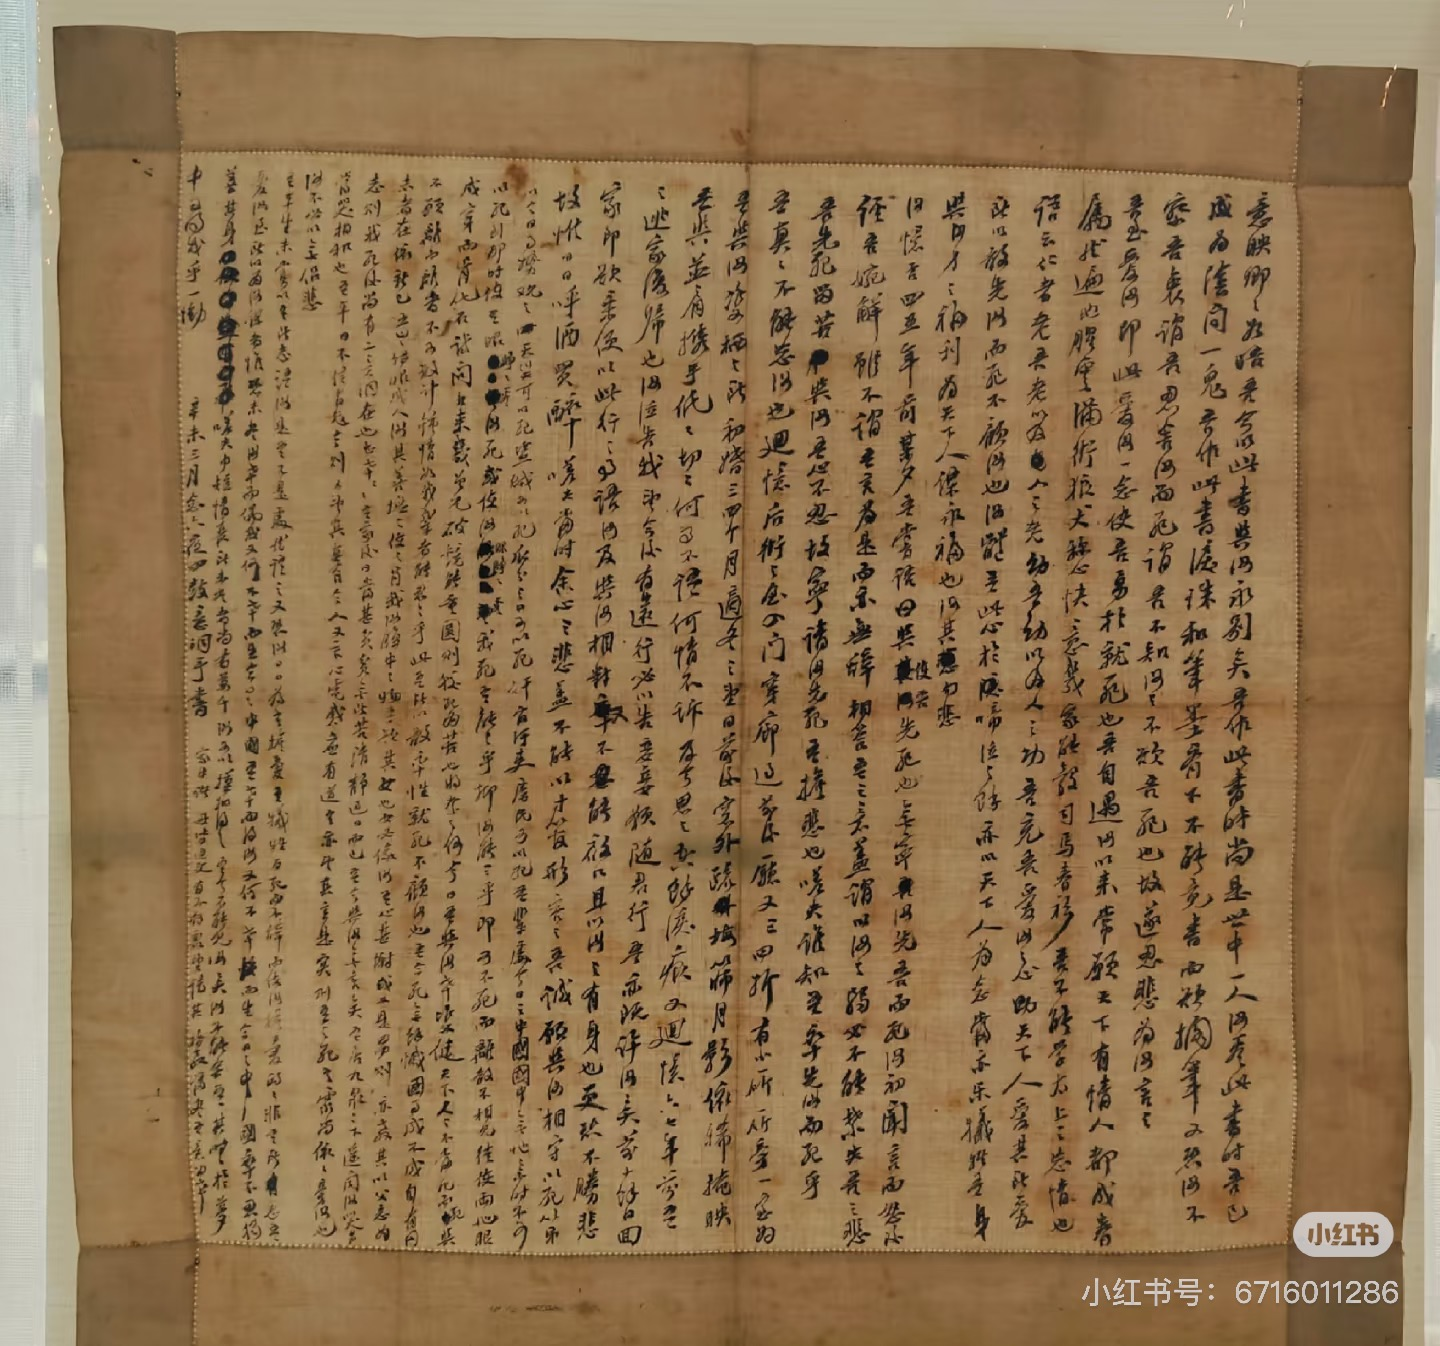 意映卿卿如晤吾今以此書與汝永別矣吾作此書時尚是世中一人汝看此書時吾已
成為陰間一鬼吾作此書淚珠和筆墨齊下不能竟書而欲擱筆又恐汝不
察吾衷謂吾忍舍汝而死謂吾不知汝之不欲吾死也故遂忍悲為汝言之
吾至愛汝即此愛汝一念使吾勇於就死也吾自遇汝以來常願天下有情人都成眷
屬然遍地腥雲滿街狼犬稱心快意幾家能彀司馬春衫吾不能學太上之忘情也
語云仁者老吾老以及人之老幼吾幼以及人之幼吾充吾愛汝之心助天下人愛其所愛
所以敢先汝而死不顧汝也汝體吾此心於啼泣之餘亦以天下人為念當亦樂犧牲吾身
與汝身之福利為天下人謀永福也汝其勿悲
汝憶否四五年前某夕吾嘗語曰與使吾先死也無寧汝先吾而死汝初聞言而怒後
經吾婉解雖不謂吾言為是而亦無辭相答吾之意蓋謂以汝之弱必不能禁失吾之悲
吾先死留苦與汝吾心不忍故寧請汝先死吾擔悲也嗟夫誰知吾卒先汝而死乎
吾真真不能忘汝也迴憶后街之屋入門穿廊過前後廳又三四折有小廳廳旁一室為
吾與汝雙棲之所初婚三四個月適冬之望日前後窗外疏梅篩月影依稀掩映
吾與並肩攜手低低切切何事不語何情不訴及今思之空餘淚痕又迴憶六七年前吾
之逃家復歸也汝泣告我望今後有遠行必以告妾妾願隨君行吾亦既許汝矣前十餘日回
家即欲乘便以此行之事語汝及與汝相對又不能啟口且以汝之有身也更恐不勝悲
故惟日日呼酒買醉嗟夫當時余心之悲蓋不能以寸管形容之吾誠願與汝相守以死第
以今日事勢觀之天災可以死盜賊可以死瓜分之日可以死奸官污吏虐民可以死吾輩處今日之中國國中無地無時不可
以死到那時使吾眼睜睜看汝死或使汝眼睜睜看我死吾能之乎抑汝能之乎即可不死而離散不相見徒使兩地眼
成穿而骨化石試問古來幾曾見破鏡能重圓則較死為苦也將奈之何今日吾與汝幸雙健天下人人不當死而死與
不願離而離者不可數計鍾情如我輩者能忍之乎此吾所以敢率性就死不顧汝也吾今死無餘憾國事成不成自有同
志者在依新已五歲轉眼成人汝其善撫之使之肖我汝腹中之物吾疑其女也女必像汝吾心甚慰或又是男則亦教其以父志為
志則我死後尚有二意洞在也甚幸甚幸吾家後日當甚貧貧無所苦清靜過日而已吾今與汝無言矣吾居九泉之下遙聞汝哭聲
當哭相和也吾平日不信有鬼今則又望其真有今人又言心電感應有道吾亦望其言是實則吾之死吾靈尚依依旁汝也
汝不必以無侶悲
吾平生未嘗以吾所志語汝是吾不是處然語之又恐汝日日為吾擔憂吾犧牲百死而不辭而使汝擔憂的的非吾所忍吾
愛汝至所以為汝謀者惟恐未盡汝幸而偶我又何不幸而生今日之中國吾幸而得汝又何不幸而生今日之中國卒不忍獨
善其身嗟夫巾短情長所未盡者尚有萬千汝可以模擬得之吾今不能見汝矣汝不能舍吾其時時於夢
中得我乎一慟 辛未三月念六夜四鼓意洞手書
家中諸母皆通文有不解處望請其指教當盡吾意為幸
小红书
小红书号：6716011286